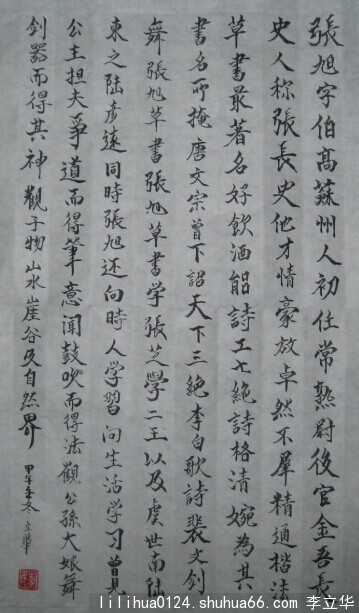 張旭字伯高蘇州人初任常熟尉後官金吾長
史人称張長史他才情豪放卓然不羣精通楷法
草書最著名好飲酒能詩工七絕詩格清婉為其
書名所掩唐文宗曾下詔天下三絕李白歌詩裴文劍
舞張旭草書張旭草書学張芝學二王以及虞世南陆
柬之陆彦遠同時張旭还向時人学習向生活学习曾見
公主担夫爭道而得筆意聞鼓吹而得法觀公孫大娘舞
剑器而得其神觀于物山水崖谷及自然界
甲午冬立華
lilihua0124.shuhua66.com 李立华